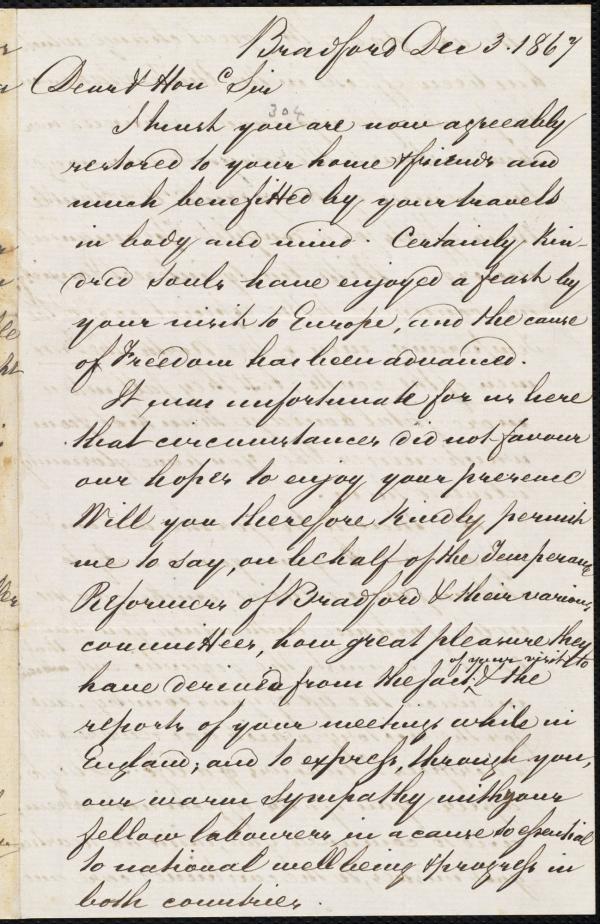 Bradford Dec 3. 1867
Dear & Hon^d Sir
304
I trust you are now agreeably
restored to your home & friends and
much benefitted by your travels
in body and mind. Certainly Kin-
dred souls have enjoyed a feast by
your visit to Europe, and the cause
of Freedom has been advanced.
It was unfortunate for us here
that circumstances did not favour
our hopes to enjoy your presence
Will you therefore Kindly permit
me to say, on behalf of the Temperance
Reformers of Bradford & their various
committees, how great pleasure they
of your visit & to
have derived from the fact, & the
reports of your meetings while in
England; and to express, through you,
our warm sympathy with your
fellow labourers, in a cause so essential
to national well being & progress in
both countries.